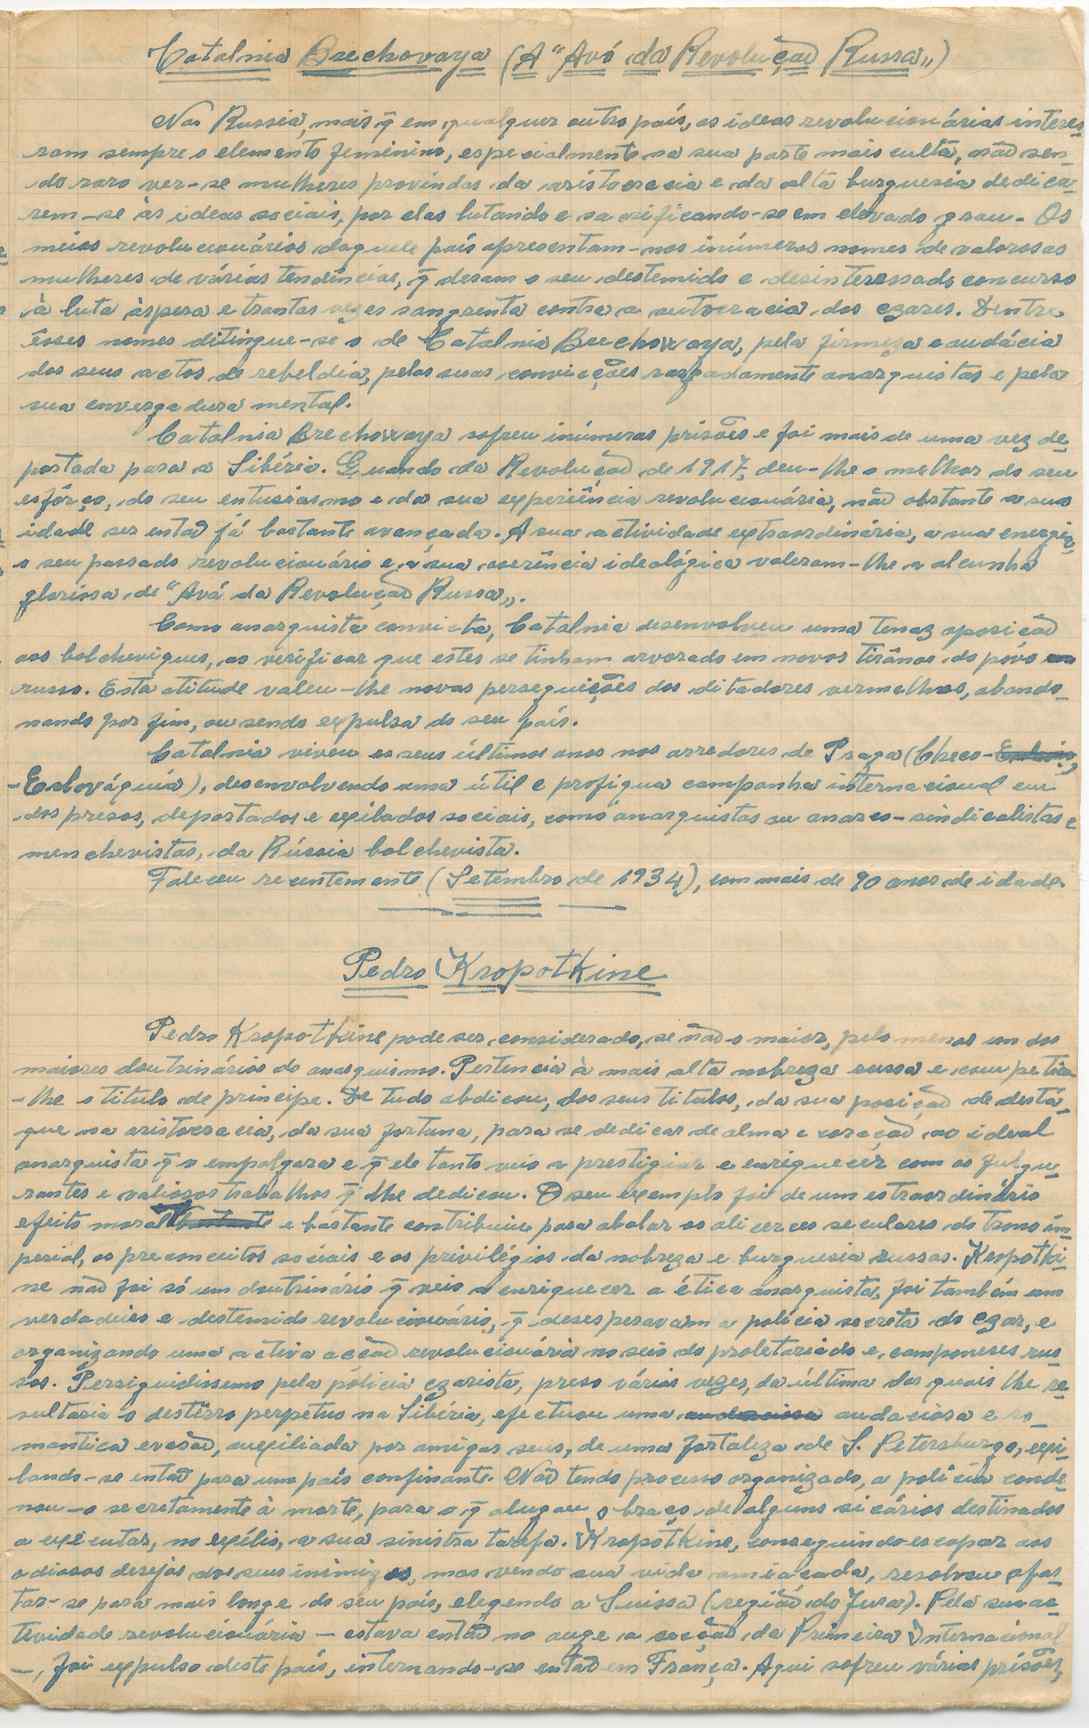 Catalnia Brechovaya (A "Avó da Revolução Russa,,)
Na Russia, mais q̃ em qualquer outro país, as ideas revolucionárias interes
ram sempre o elemento feminino, especialmente na sua parte mais culta, não sen-
do raro ver-se mulheres provindas da aristocracia e da alta burguesia dedica-
rem-se às ideas sociais, por elas lutando e sacrificando-se em elevado grau. Os
meios revolucionários daquele país apresentam-nos inúmeros nomes de valorosas
mulheres de várias tendências, q̃ desam o seu destemido e desinteressado concurso
à luta àspera e trantas vezes sangrenta contra a autocracia dos czares. Dentre
êsses nomes ditingue-se o de Catalnia Brechovaya, pela firmeza e audácia
dos seus actos de rebeldia, pelas suas convicções rasgadamente anarquistas e pela
sua envergadura mental.
Catalnia Brechovaya sofreu inúmeras prisões e foi mais de uma vez de-
portada para a Sibéria. Quando da Revolução de 1917, deu-lhe o melhor do seu
esfôrço, do seu entusiasmo e da sua experiência revolucionária, não obstante a sua
idade ser então já bastante avançada. A sua actividade extraordinária, a sua energia
o seu passado revolucionário e a sua coerência ideológica valeram-lhe a alcunha
gloriosa de "Avó da Revolução Russa,,.
Como anarquista convicta, Catalnia desenvolveu uma tenaz oposição
aos bolcheviques, ao verificar que estes se tinham arvorado em novos tirânos do povo
russo. Esta atitude valeu-lhe novas perseguições dos ditadores vermelhos, abando-
nando por fim, ou sendo expulsa do seu país.
Catalnia viveu os seus últimos anos nos arredores de Praga (Checo-
-Eslováquia), desenvolvendo uma útil e profiqua campanha internacional em
dos presos, deportados e exilados sociais, como anarquistas ou anarco-sindicalistas e
menchevistas, da Rússia bolchevista.
Faleceu recentemente (Setembro de 1934), com mais de 90 anos de idade.
Pedro Kropotkine
Pedro Kropotkine pode ser considerado, se não o maior, pelo menos um dos
maiores doutrinários do anarquismo. Pertencia à mais alta nobreza russa e competia-
-lhe o titulo de principe. De tudo abdicou, dos seus titulos, da sua posição de destá-
que na aristocracia, da sua fortuna, para se dedicar de alma e coração ao ideal
anarquista q̃ o empolgara e q̃ ele tanto veio a prestigiar e enriquecer com os fulgu-
rantes e valiosos trabalhos q̃ lhe dedicou. O seu exemplo foi de um extraordinário
efeito moral e bastante contribuiu para abalar os alicerces seculares do trono im-
perial, os preconceitos sociais e os privilégios da nobreza e burguesia russas. Kropotki-
ne não foi só um doutrinário q̃ veio a enriquecer a ética anarquista, foi também um
verdadeiro e destemido revolucionário, q̃ desesperavam a policia secreta do czar, e
organizando uma activa acção revolucionária no seio do proletariado e camponeses rus-
sos. Perseguidissemo pela policia czarista, preso várias vezes, da última das quais lhe re-
sultaria o destêrro perpetuo na Sibéria, efectuou uma audaciosa e ro-
mantica evasão, auxiliada por amigos seus, de uma fortaleza de S. Petersburgo, exi-
lando-se então para um país confinante. Não tendo processo organizado, a policia conde-
nou-o secretamente à morte, para o q̃ alugou o braço de alguns sicários destinados
a executar, no exílio, a sua sinistra tarefa. Kropotkine, conseguindo escapar aos
odiosos desejos dos seus inimigos, mas vendo sua vida amiaçada, resolveu afas-
tar-se para mais longe do seu país, elegendo a Suissa (região do Jura). Pela sua ac-
tividade revolucionária — estava então no auge a secção da Primeira Internacional
—, foi expulso deste país, internando-se então em França. Aqui sofreu várias prisões,